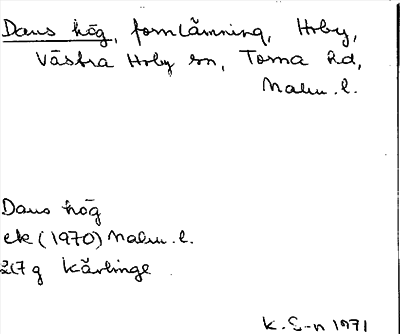 Daus hög, fornlämning, Hrby,
Västra Hrby sn, Torna hd,
Malm. l.
Daus hög
ek (1970) Malm. l.
2f7 g Kävlinge
K. E-n 1971